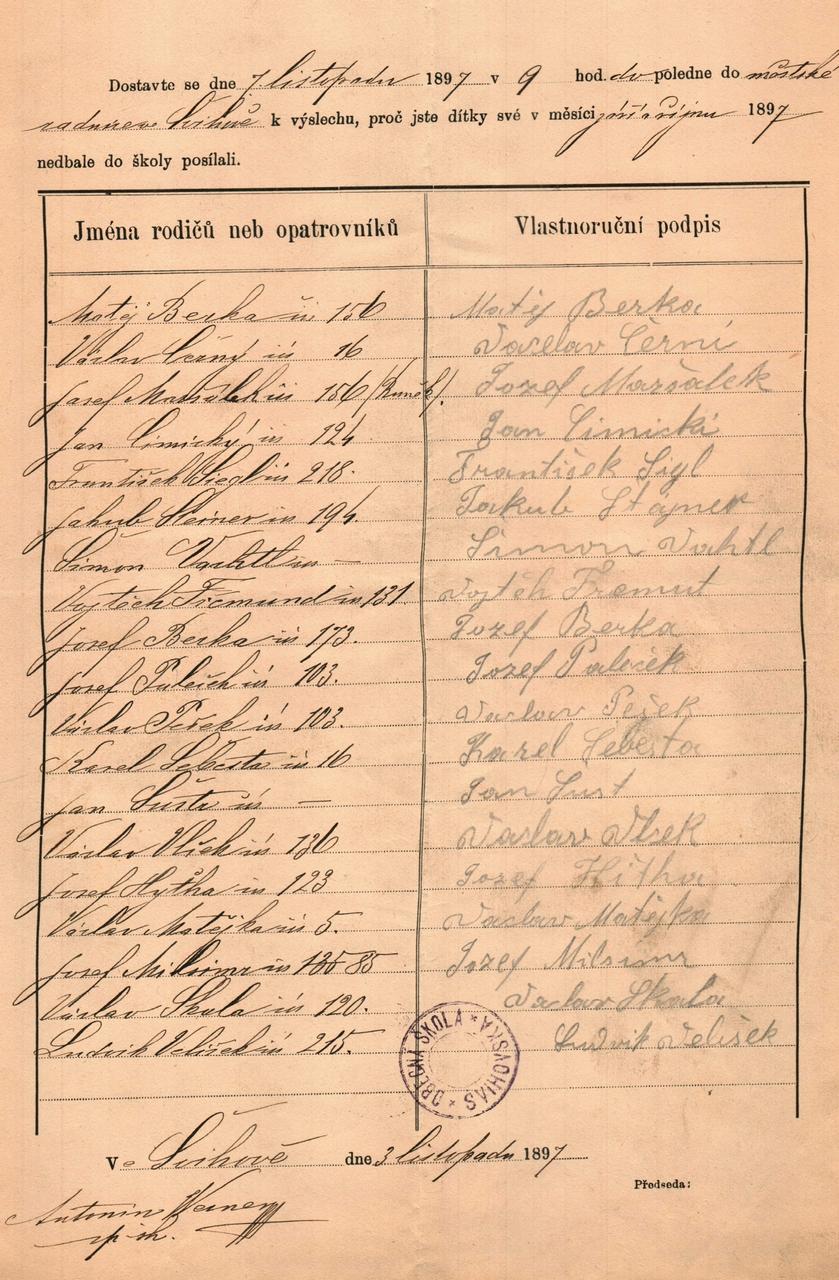 Dostavte se dne 7 listopadu 1897 v 9 hod. do poledne do městské
radnice ve Švihově k výslechu, proč jste dítky své v měsíci září a říjnu 1897
nedbale do školy posílali.
Jména rodičů neb opatrovníků Vlastnoruční podpis
Matěj Berka čís 156 Matěj Berka
Václav Černý čís 16 Vaclav Černí
Josef Maršálek čís 156 Jozef Maršalek
Jan Cimický čís 124 Jan Cimicki
František Siegl čís 218. František Sigl
Jakub Steiner čís 194. Jakub Stajner
Šimon Vachtl čís — Simon Vahtl
Vojtěch Fremund čís 131. Vojtěh Fremut
Josef Berka čís 173. Jozef Berka
Josef Paleček čís 103. Jozef Paleček
Václav Pešek čís 103. Vaclav Pešek
Karel Šebesta čís 16 Karel Šebesta
Jan Šustr čís — Jan Šust
Václav Vlček čís 136 Vaclav Vlsek
Josef Hytha čís 123 Jozef Hitha
Václav Matějka čís 5. Vaclav Matějka
Josef Milsimr čís 135 85 Jozef Milsimr
Václav Skala čís 120. Vaclav Skala
Ludvík Velíšek čís 215. Ludvik Velišek
OBECNÁ ŠKOLA * SVIHOVSKÁ *
Ve Švihově dne 3 listopadu 1897
Předseda:
Antonín Werner